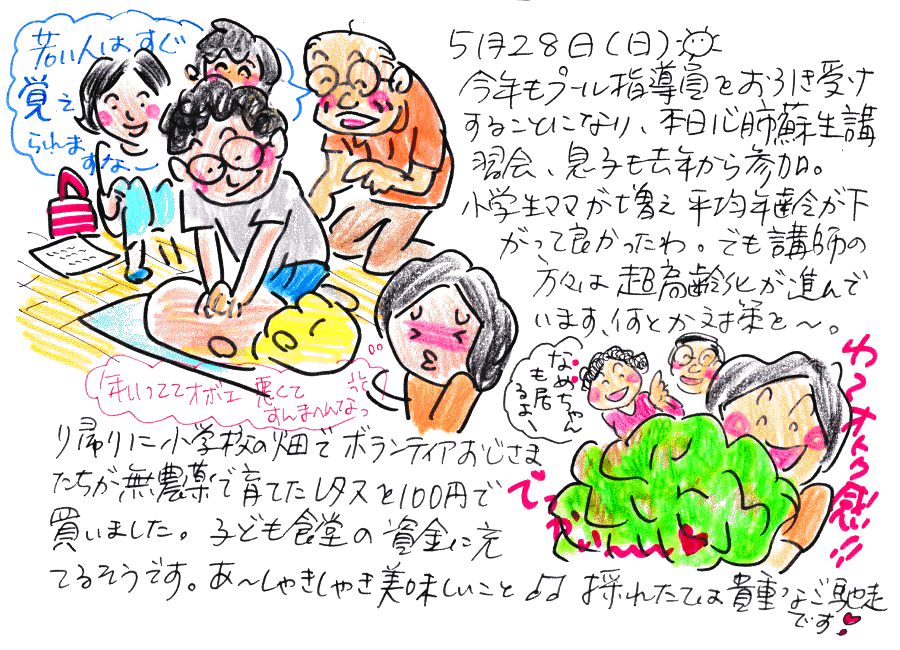 若い人はすぐ
覚え
られま
すな〜
5月28日(日)
今年もプール指導員をお引き受け
することになり、本日心肺蘇生講
習会、息子も去年から参加。
小学生ママが増え平均年齢が下
がって良かったわ。でも講師の
方々は超高齢化が進んで
います、何とか対策を〜。
年いっててオボエ悪くて
すんまへんなっ
なめちゃん
も居
るよ〜
り帰りに小学校の畑でボランティアおじさま
たちが無農薬で育てたレタスを100円で
買いました。子ども食堂の資金に充
てるそうです。あ〜しゃきしゃき美味しいこと♫採れたては貴重なご馳走
です